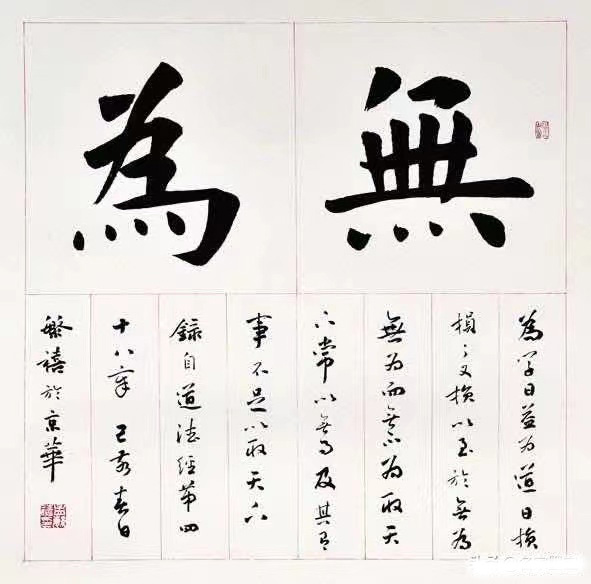 無為
為学日益为道日損
損之又損以至於無為
無为而無不為取天
下常以無事及其有
事不足以取天下
録自道德經第四
十八章 己亥春日
繁禧於京華